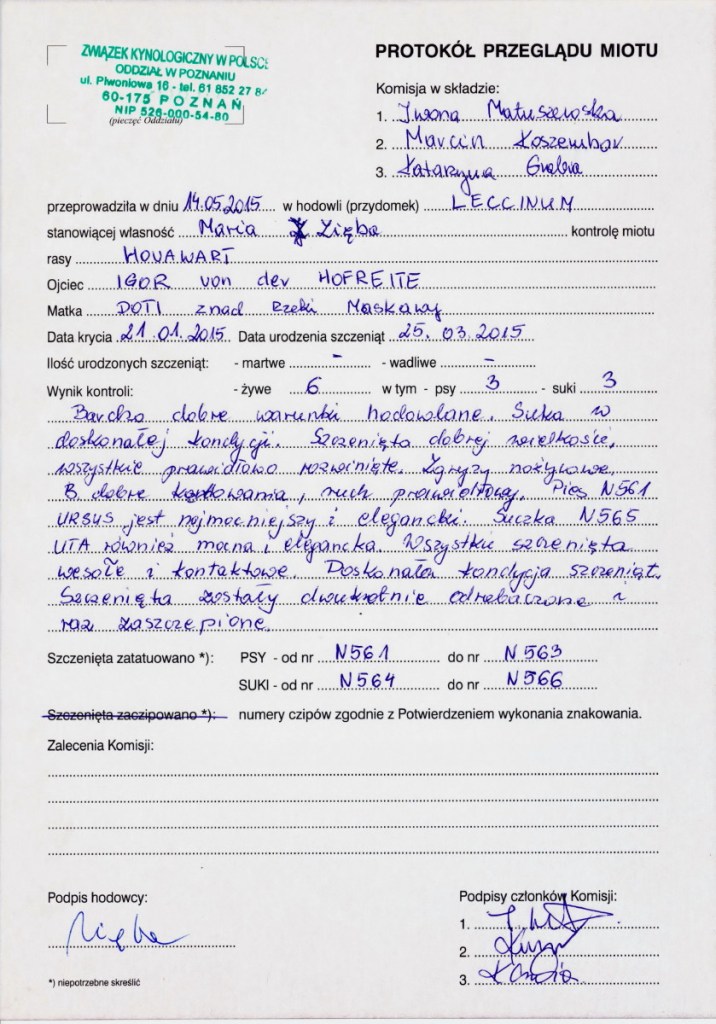 ZWIĄZEK KYNOLOGICZNY W POLSCE
ODDZIAŁ W POZNANIU
ul. Piwoniowa 16 - tel. 61 852 27 8
60-175 POZNAŃ
NIP 526-000-54-80
(pieczęć Oddziału)
PROTOKÓŁ PRZEGLĄDU MIOTU
Komisja w składzie:
1. Iwona Matuszewska
2. Marcin Koszembar
3. Katarzyna Grabia
przeprowadziła w dniu 14.05.2015 w hodowli (przydomek) LECCINUM
stanowiącej własność Maria Zięba kontrolę miotu
rasy HOVAWART
Ojciec IGOR von der HOFREITE
Matka DOTI znad Rzeki Moskawy
Data krycia 21.01.2015 Data urodzenia szczeniąt 25.03.2015
Ilość urodzonych szczeniąt: - martwe - - wadliwe -
Wynik kontroli: - żywe 6 w tym - psy 3 - suki 3
Bardzo dobre warunki hodowlane. Suka w
doskonałej kondycji. Szczenięta dobrej wielkości,
wszystkie prawidłowo rozwinięte. Zgryzy nożycowe.
B. dobre kątowania, ruch prawidłowy. Pies N561
URSUS jest najmocniejszy i elegancki. Suczka N565
UTA również mocna i elegancka. Wszystkie szczenięta
wesołe i kontaktowe. Doskonała kondycja szczeniąt.
Szczenięta zostały dwukrotnie odrobaczone i
raz zaszczepione.
Szczenięta zatatuowano *): PSY - od nr N561 do nr N563
SUKI - od nr N564 do nr N566
Szczenięta zaczipowano *): numery czipów zgodnie z Potwierdzeniem wykonania znakowania.
Zalecenia Komisji:
Podpis hodowcy:
Zięba
Podpisy członków Komisji:
1.
2.
3.
*) niepotrzebne skreślić